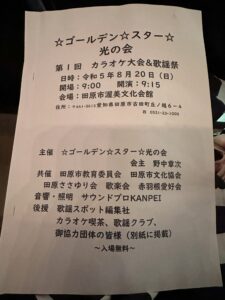 ☆ゴールデン☆スター☆
光の会
第1回 カラオケ大会&歌謡祭
日時:令和5年8月20日(日)
開場:9:00 開演:9:15
会場:田原市渥美文化会館
住所:愛知県田原市古田町
主催 ☆ゴールデン☆スター☆光の会
会主 野中章次
共催 田原市教育委員会 田原市文化協会
田原ささゆり会 歌楽会 赤羽根愛好会
音響・照明 サウンドプロKANPEI
後援 歌謡スポット編集社
カラオケ喫茶、歌謡クラブ、
御協力団体の皆様(別紙に掲載)
~入場無料~